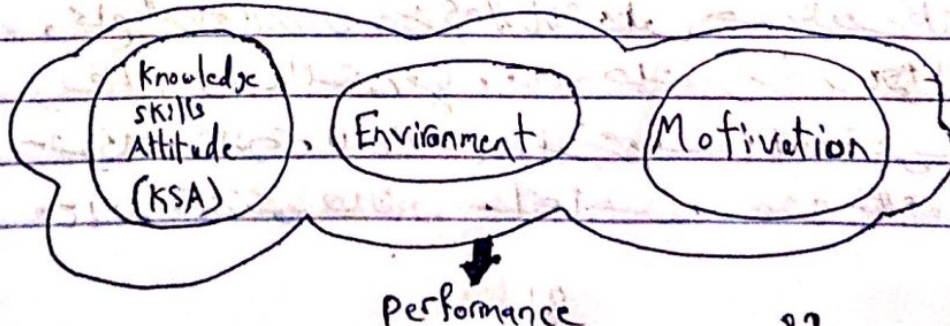 Knowledge
skills
Attitude
(KSA)
Environment
Motivation
performance